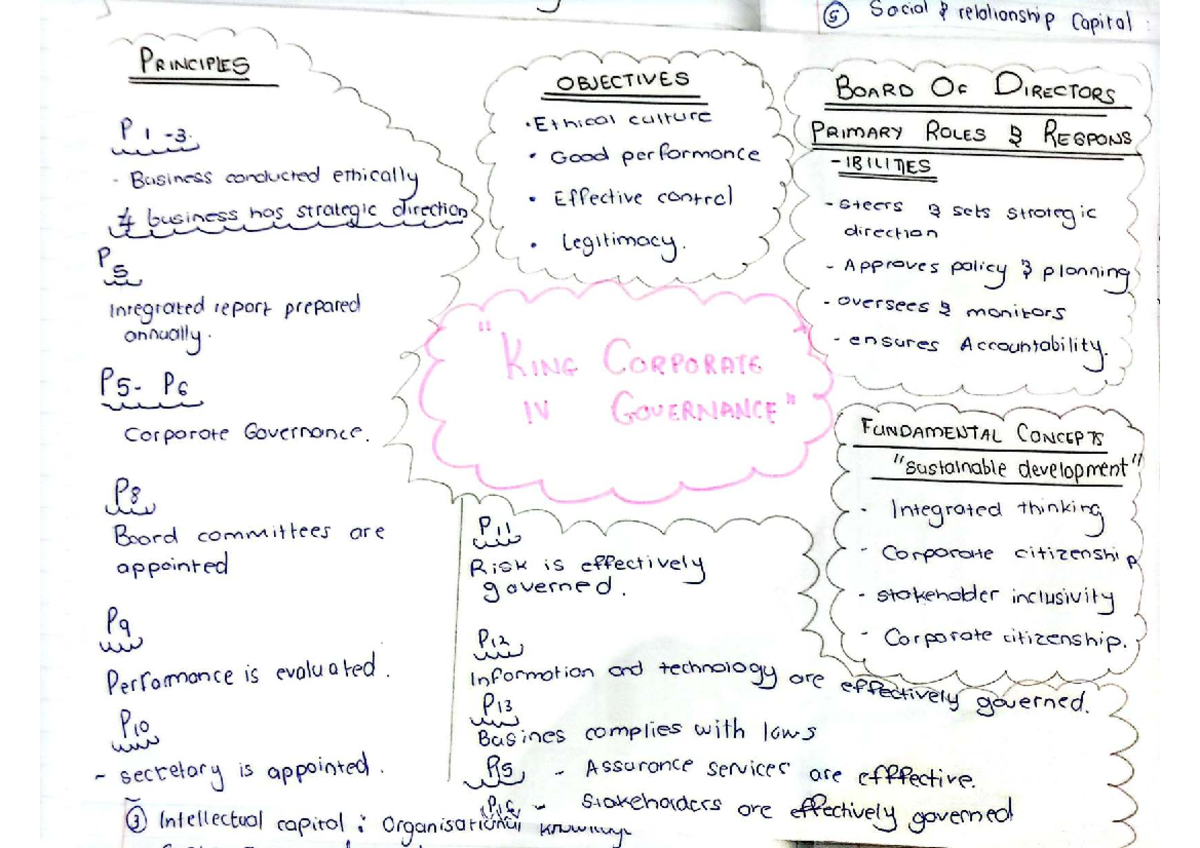 ⑤ Social & relationship Capital :
PRINCIPLES
P1-3.
- Business conducted ethically
& business has strategic direction
P5
Integrated report prepared
annually.
P5- P6
Corporate Governance.
P8
Board committees are
appointed
P9
Performance is evaluated.
P10
- secretary is appointed.
③ Intellectual capital : Organisational knowledge
OBJECTIVES
• Ethical culture
• Good performance
• Effective control
• Legitimacy.
"KING CORPORATE
IV GOVERNANCE"
P11
Risk is effectively
governed.
P12
Information and technology are effectively governed.
P13
Busines complies with laws
P15 - Assurance services are efffective.
P16 - Stakeholders are effectively governed
BOARD OF DIRECTORS
PRIMARY ROLES & RESPONS
-IBILITIES
- steers & sets strategic
direction
- Approves policy & planning
- oversees & monitors
- ensures Accountability.
FUNDAMENTAL CONCEPTS
"sustainable development"
- Integrated thinking
- Corporate citizenship
- stakeholder inclusivity
- Corporate citizenship.